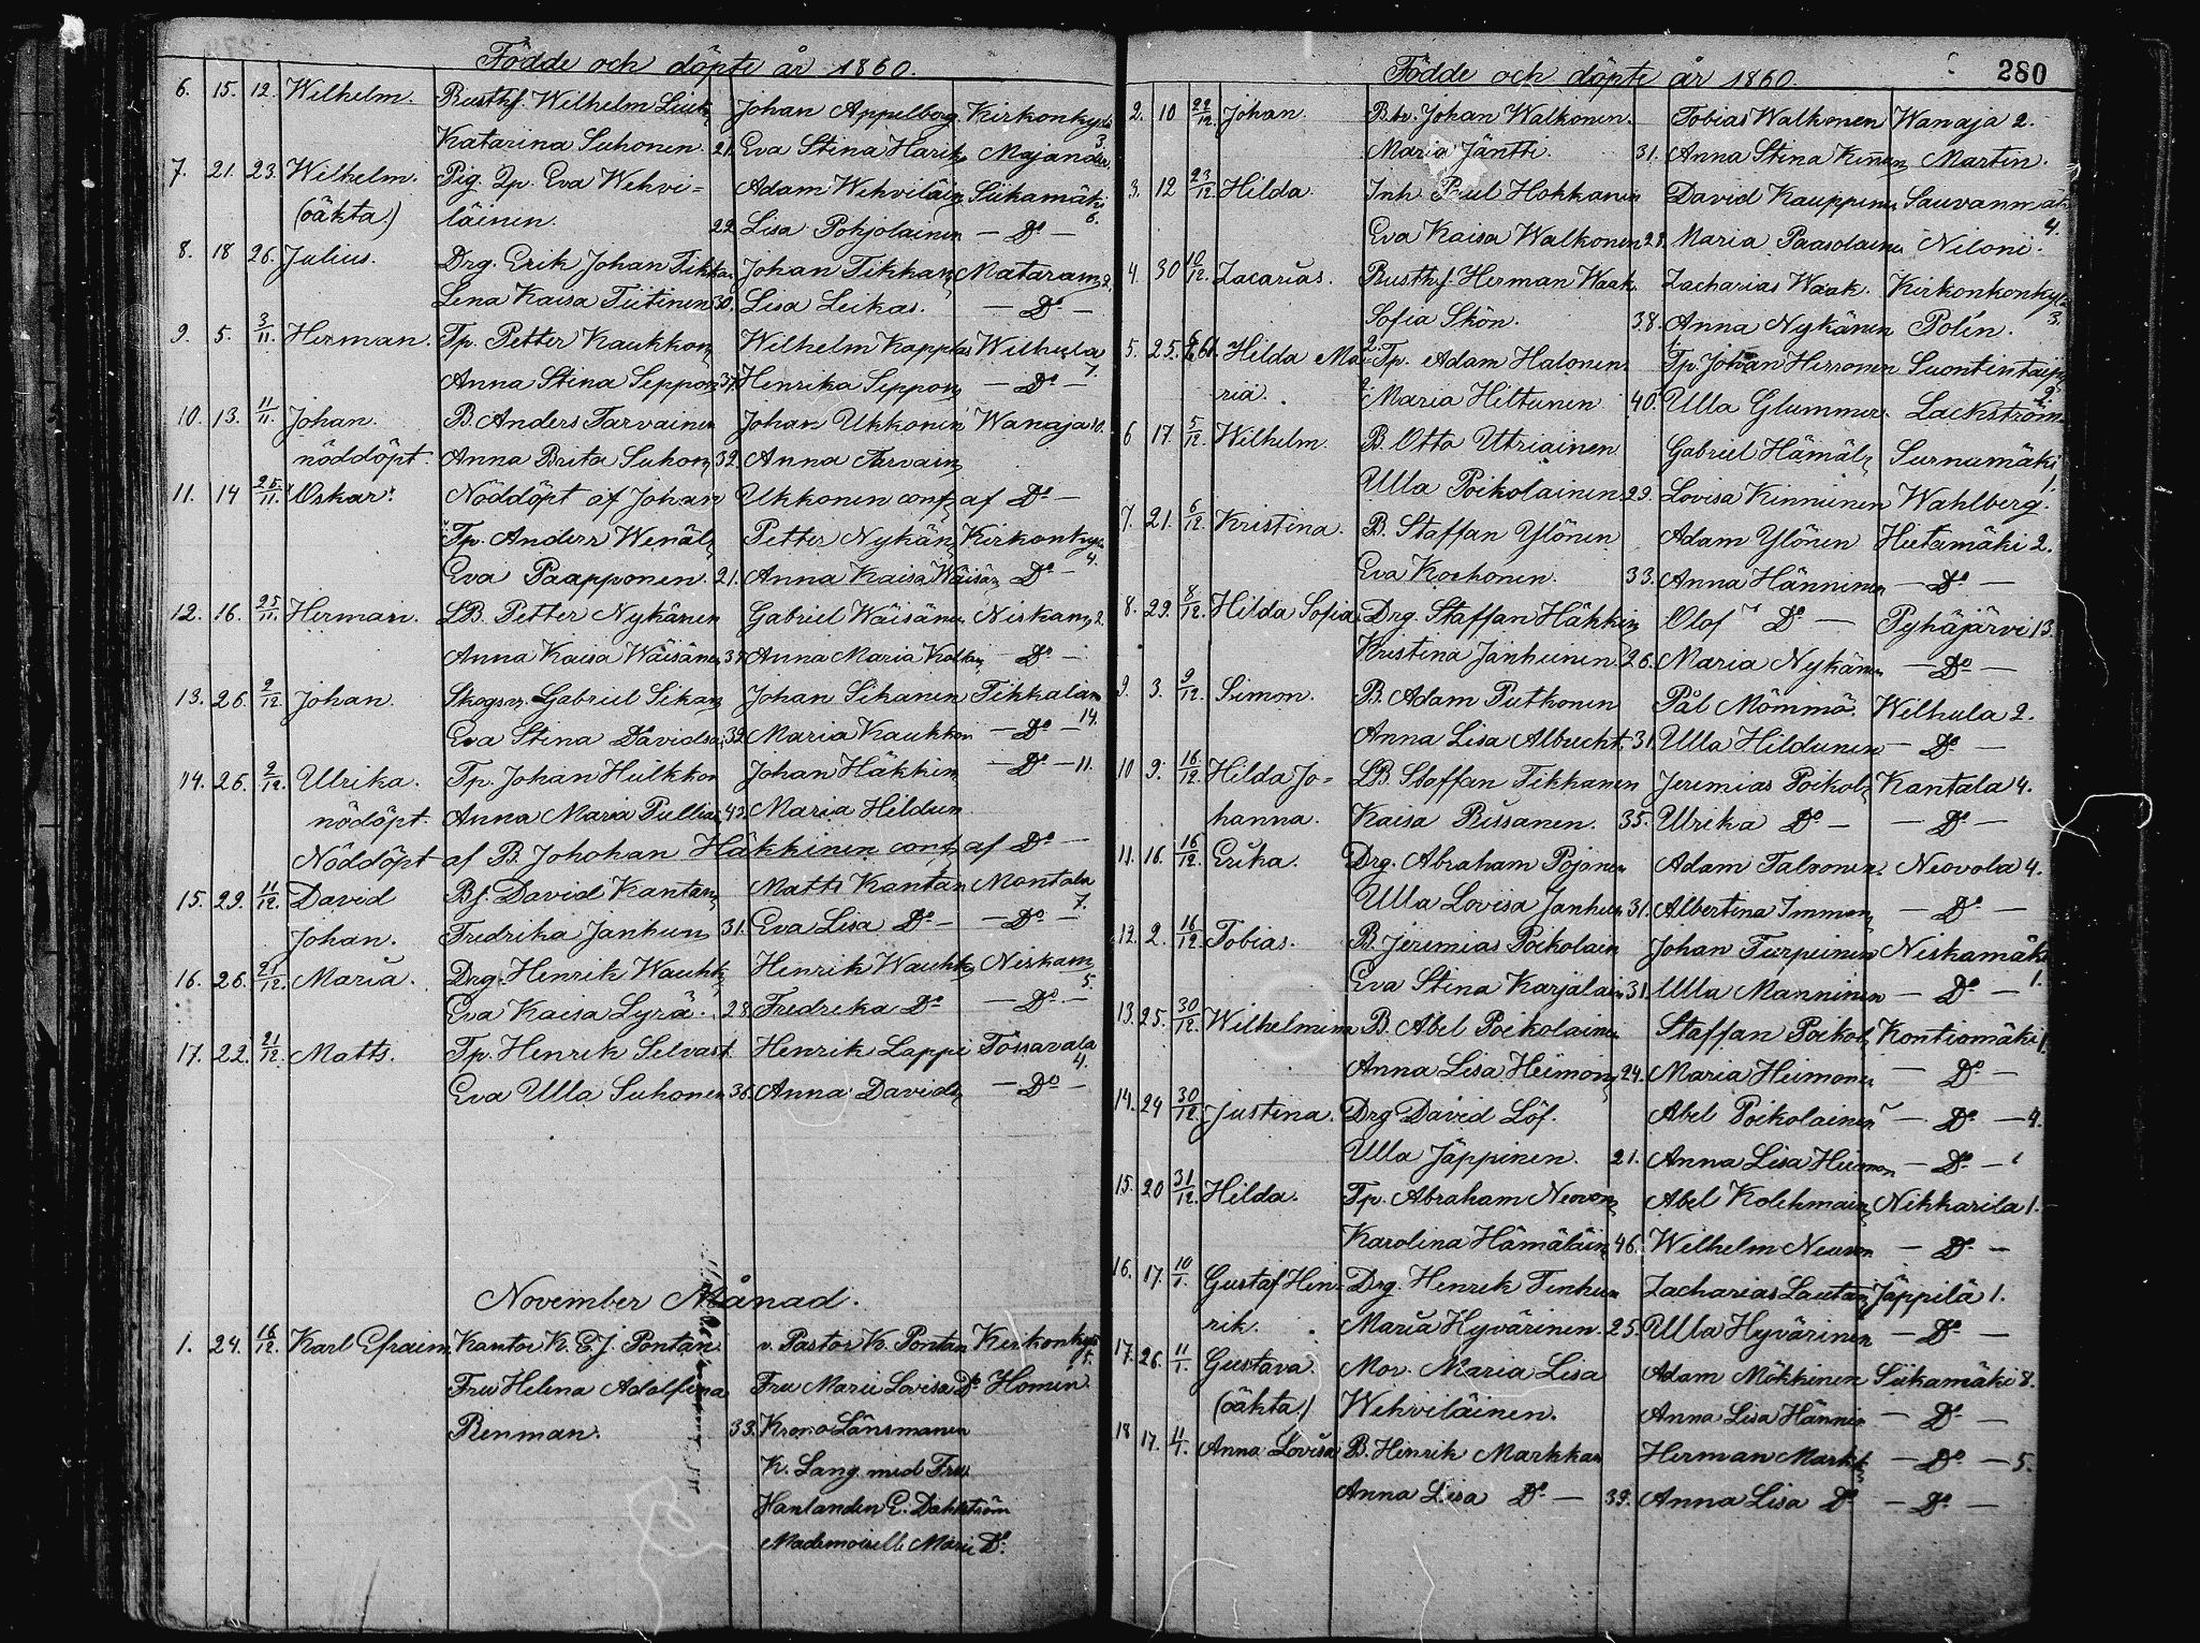 Födde och döpte år 1860.
6. 15. 12. Wilhelm. Rusthf. Wilhelm Liuk Johan Appelborg Kirkonkylä 3.
Katarina Suhonen. 21. Eva Stina Harik Majander.
7. 21. 23. Wilhelm. Pig. Qp. Eva Wehvi= Adam Wehviläin Siikamäki 6.
(oäkta) läinen. 22. Lisa Pohjolainen — Do —
8. 18 26. Julius. Drg. Erik Johan Tikka Johan Tikkan Mataram 2.
Lena Kaisa Tiitinen 30. Lisa Leikas. — Do —
9. 5. 3/11. Herman. Tp. Petter Kaukkon Wilhelm Kapplas Wilhula 7.
Anna Stina Seppon 37. Henrika Seppon — Do —
10. 13. 11/11. Johan. B. Anders Tarvainen Johan Ukkonen Wanaja 10.
nöddöpt. Anna Brita Suhon 32. Anna Tarvain
11. 14 25/11. "Oskar". Nöddöpt af Johan Ukkonen conf. af Do —
Tp. Anders Wenäl Petter Nykän Kirkonkyl 4.
Eva Paapponen. 21. Anna Kaisa Wäisän Do —
12. 16. 25/11. Herman. LB. Petter Nykänen Gabriel Wäisänen Niskam 2.
Anna Kaisa Wäisänen 37. Anna Maria Kolk — Do —
13. 26. 2/12. Johan. Skogsv. Gabriel Sikan Johan Sikanen Tikkalam 14.
Eva Stina Davidsd. 32. Maria Kaukkon — Do —
14. 26. 2/12. Ulrika. Tp. Johan Hulkkon Johan Häkkin — Do — 11.
nödöpt. Anna Maria Pullia 42. Maria Hildun
Nöddöpt af B. Johohan Häkkinen conf. af Do —
15. 29. 11/12. David Bf. David Kantan Matts Kantan Montala 7.
Johan. Fredrika Janhun 31. Eva Lisa Do — — Do —
16. 26. 21/12. Maria. Drg. Henrik Wauhk Henrik Wauhk Niskam 5.
Eva Kaisa Lyrä. 28. Fredrika Do — Do —
17. 22. 21/12. Matts. Tp. Henrik Selvast Henrik Lappi Tössavala 4.
Eva Ulla Suhonen 36. Anna Davids — Do —
November Månad.
1. 24. 16/12. Karl Efraim. Kantor K. E. J. Pontan v. Pastor K. Pontan Kirkonkyl 5.
Fru Helena Adolfina Fru Marie Lovisa Do Homén.
Renman. 33. Krono Länsmannen
K. Lang med Fru
Hanlanden E. Dahlström
Mademoiselle Marie Do.
280
Födde och döpte år 1860.
2. 10 22/12. Johan. B.br. Johan Walkonen. Tobias Walkonen Wanaja 2.
Maria Jäntti. 31. Anna Stina Kinnun Martin.
3. 12 23/12 Hilda. Inh. Paul Hokkanen David Kauppinen Sauvanmäk 4.
Eva Kaisa Walkonen 28. Maria Paasolainen Niloni.
4. 30 10/12. Zacarias. Rusthf. Herman Waak. Zacharias Waak. Kirkonkonkylä 3.
Sofia Skön. 38. Anna Nykänen Polén.
5. 25. 61. Hilda Ma- Tp. Adam Halonen. Tp. Johan Hirronen Suontientaip 2.
ria. Maria Hiltunen 40. Ulla Glummer. Lackström.
6 17. 5/12. Wilhelm. B. Otto Utriainen Gabriel Hämäl Surnumäki 1.
Ulla Poikolainen 29. Lovisa Kinnunen Wahlberg.
7. 21. 6/12. Kristina. B. Staffan Ylönen Adam Ylönen Hietamäki 2.
Eva Korhonen. 33. Anna Hänninen — Do —
8. 29. 8/12. Hilda Sofia Drg. Staffan Häkkin Olof Do — Pyhäjärvi 13.
Kristina Janhunen. 26. Maria Nykänen — Do —
9. 3. 9/12. Simon. B. Adam Putkonen Pål Mömmö. Wilhula 2.
Anna Lisa Albrecht. 31. Ulla Hildunen — Do —
10 9. 16/12. Hilda Jo= LB. Staffan Tikkanen Jeremias Poikol Kantala 4.
hanna. Kaisa Rissanen. 35. Ulrika Do — — Do —
11. 16. 16/12. Erika. Drg. Abraham Pojonen Adam Talvonen. Neovola 4.
Ulla Lovisa Janhun 31. Albertina Immon — Do —
12. 2. 16/12. Tobias. B. Jeremias Poikolain Johan Turpeinen Niskamäki 1.
Eva Stina Karjalain 31. Ulla Manninen — Do —
13. 25. 30/12. Wilhelmina B. Abel Poikolainen Staffan Poikol Kontiomäki 1.
Anna Lisa Heimon 24. Maria Heimonen — Do —
14. 24 30/12. Justina. Drg David Löf. Abel Poikolainen — Do — 4.
Ulla Jäppinen. 21. Anna Lisa Heimon — Do —
15. 20 31/12. Hilda. Tp. Abraham Neovon Abel Kolehmain Nikkarila 1.
Karolina Hämäläin 46. Wilhelm Neuvon — Do —
16. 17. 10/1. Gustaf Hin- Drg. Henrik Tenhun Zacharias Lautan Jäppilä 1.
rik. Maria Hyvärinen. 25. Ulla Hyvärinen — Do —
17. 26. 11/1. Gustava. Mor. Maria Lisa Adam Mökkinen Siikamäki 8.
(oäkta) Wehviläinen. Anna Lisa Hännin — Do —
18 17. 11/1. Anna Lovisa B. Henrik Markkan Herman Markk — Do — 5.
Anna Lisa Do — 39. Anna Lisa Do — Do —